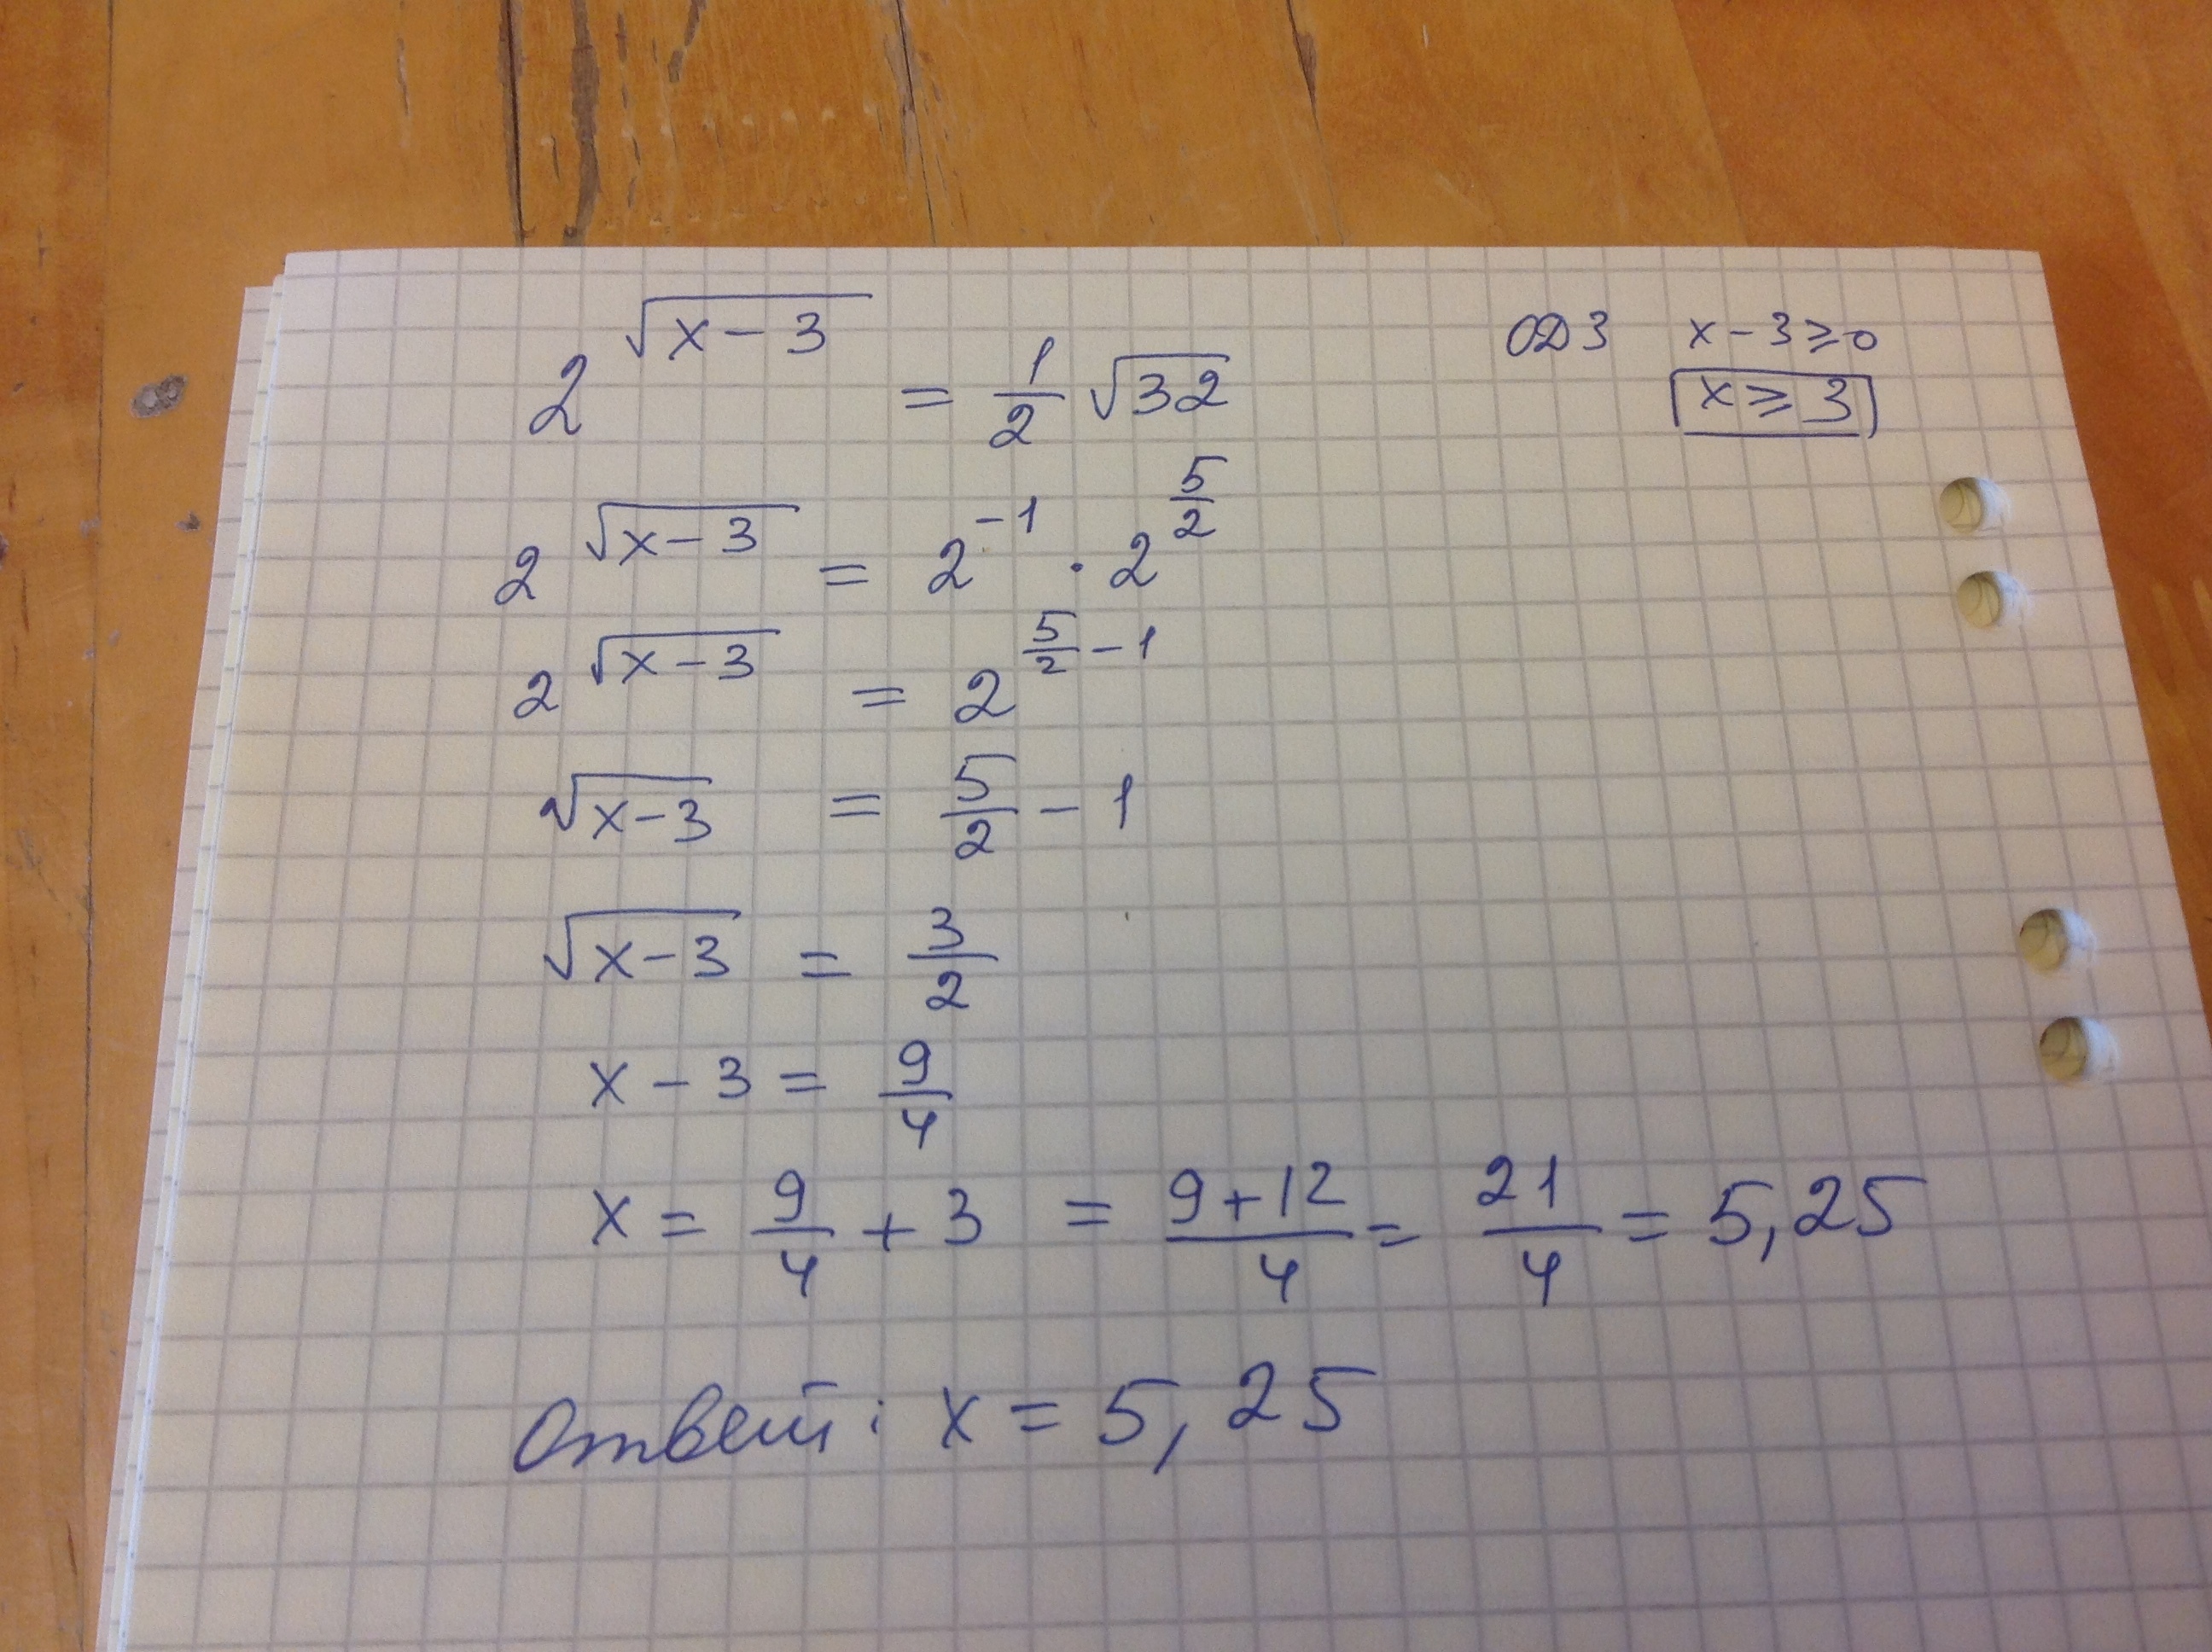 2^{√(x-3)} = 1/2 √32 ОДЗ x-3≥0
x≥3
2^{√(x-3)} = 2^{-1} · 2^{5/2}
2^{√(x-3)} = 2^{5/2-1}
√(x-3) = 5/2 - 1
√(x-3) = 3/2
x - 3 = 9/4
x = 9/4 + 3 = (9+12)/4 = 21/4 = 5,25
Ответ: x = 5,25